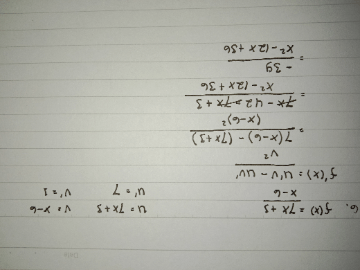 6. f(x) = 7x + 3 u = 7x+3 v = x-6
x-6 u' = 7 v' = 1
f'(x) = u'v - uv'
v²
= 7(x-6) - (7x+3)
(x-6)²
= 7x - 42 - 7x + 3
x² - 12x + 36
= - 39
x² - 12x + 36